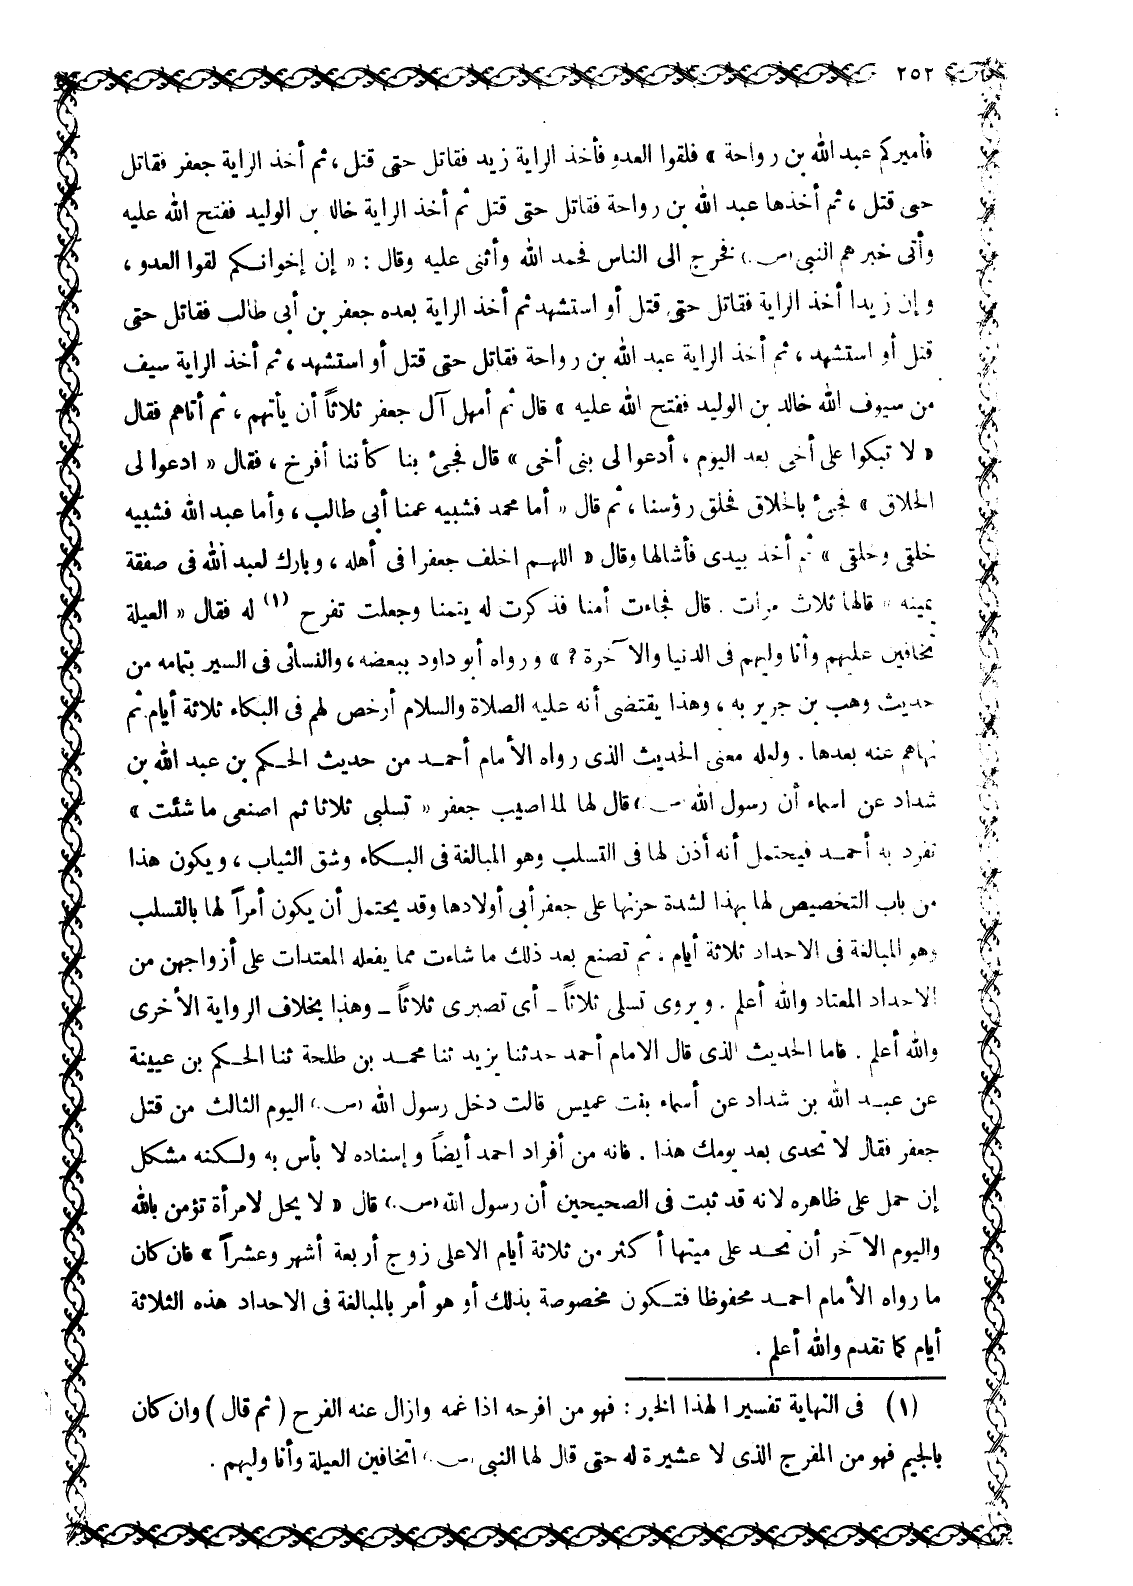 ٢٥٢
فأميركم عبد الله بن رواحة » فلقوا العدو فأخذ الراية زيد فقاتل حتى قتل ، ثم أخذ الراية جعفر فقاتل
حتى قتل ، ثم أخذها عبد الله بن رواحة فقاتل حتى قتل ثم أخذ الراية خالد بن الوليد ففتح الله عليه
وأتى خبرهم النبى (ص.) فخرج الى الناس فحمد الله وأثنى عليه وقال : « إن إخوانكم لقوا العدو ،
وإن زيدا أخذ الراية فقاتل حتى قتل أو استشهد ثم أخذ الراية بعده جعفر بن أبى طالب فقاتل حتى
قتل أو استشهد ، ثم أخذ الراية عبد الله بن رواحة فقاتل حتى قتل أو استشهد ، ثم أخذ الراية سيف
من سيوف الله خالد بن الوليد ففتح الله عليه » قال ثم أمهل آل جعفر ثلاثاً أن يأتهم ، ثم أتاهم فقال
« لا تبكوا على أخى بعد اليوم ، أدعوا لى بنى أخى » قال فجىء بنا كأننا أفرخ ، فقال « ادعوا لى
الحلاق » فجىء بالحلاق فحلق رؤسنا ، ثم قال « أما محمد فشبيه عمنا أبى طالب ، وأما عبد الله فشبيه
خلقى وخلقى » ثم أخذ بيدى فأشالها وقال « اللهم اخلف جعفرا فى أهله ، وبارك لعبد الله فى صفقة
يمينه » قالها ثلاث مرات . قال فجاءت أمنا فذكرت له يتمنا وجعلت تفرح (١) له فقال « العيلة
تخافين عليهم وأنا وليهم فى الدنيا والآخرة ؟ » ورواه أبو داود ببعضه ، والنسائى فى السير بتمامه من
حديث وهب بن جرير به ، وهذا يقتضى أنه عليه الصلاة والسلام أرخص لهم فى البكاء ثلاثة أيام ثم
نهاهم عنه بعدها . ولعله معنى الحديث الذى رواه الأمام أحمد من حديث الحكم بن عبد الله بن
شداد عن اسماء أن رسول الله (ص.) قال لها لما اصيب جعفر « تسلبى ثلاثا ثم اصنعى ما شئت »
تفرد به أحمد فيحتمل أنه أذن لها فى التسلب وهو المبالغة فى البكاء وشق الثياب ، ويكون هذا
من باب التخصيص لها بهذا لشدة حزنها على جعفر أبى أولادها وقد يحتمل أن يكون أمراً لها بالتسلب
وهو المبالغة فى الاحداد ثلاثة أيام . ثم تصنع بعد ذلك ما شاءت مما يفعله المعتدات على أزواجهن من
الاحداد المعتاد والله أعلم . ويروى تسلى ثلاثاً ـ أى تصبرى ثلاثاً ـ وهذا بخلاف الرواية الأخرى
والله أعلم . فاما الحديث الذى قال الامام أحمد حدثنا يزيد ثنا محمد بن طلحة ثنا الحكم بن عيينة
عن عبد الله بن شداد عن أسماء بنت عميس قالت دخل رسول الله (ص.) اليوم الثالث من قتل
جعفر فقال لا تحدى بعد يومك هذا . فانه من أفراد احمد أيضاً وإسناده لا بأس به ولكنه مشكل
إن حمل على ظاهره لانه قد ثبت فى الصحيحين أن رسول الله (ص.) قال « لا يحل لامرأة تؤمن بالله
واليوم الآخر أن تحد على ميتها أكثر من ثلاثة أيام الاعلى زوج أربعة أشهر وعشراً » فان كان
ما رواه الأمام احمد محفوظا فتكون مخصوصة بذلك أو هو أمر بالمبالغة فى الاحداد هذه الثلاثة
أيام كما تقدم والله أعلم .
(١) فى النهاية تفسيرا لهذا الخبر : فهو من افرحه اذا غمه وازال عنه الفرح ( ثم قال ) وان كان
بالجيم فهو من المفرج الذى لا عشيرة له حتى قال لها النبى (ص.) اتخافين العيلة وأنا وليهم .